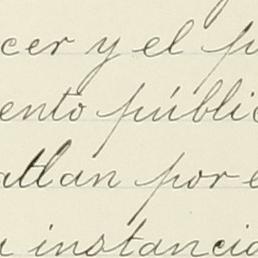 cer y el p
ento públic
atlan por e
a instancia